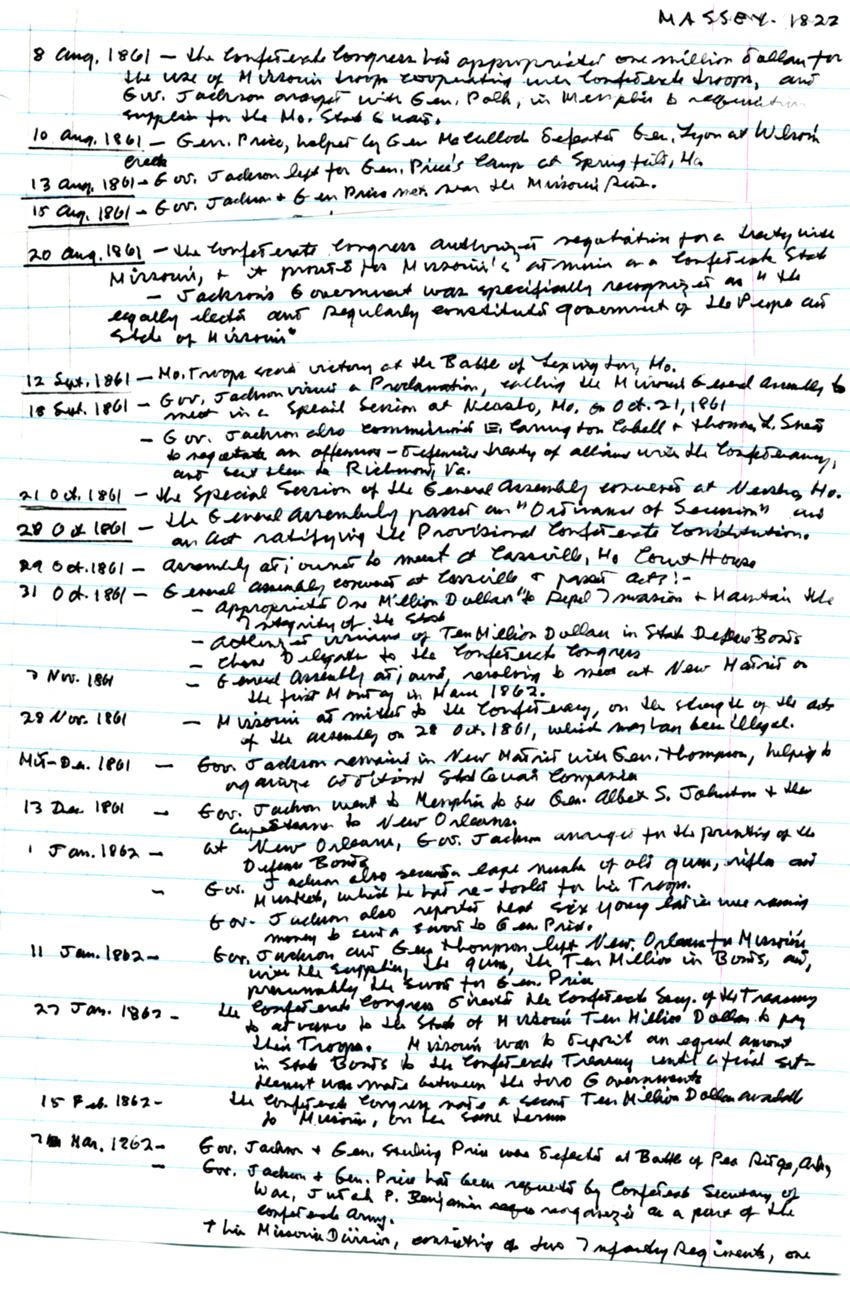 MASSEY. 1822
8 Aug. 1861 – The Confederate Congress had appropriated one million dollars for
the use of Missouri troops cooperating with Confederate troops, and
Gov. Jackson arranged with Gen. Polk, in Memphis to requisition
supplies for the Mo. State Guard.
10 Aug. 1861 – Gen. Price, helped by Gen McCulloch defeated Gen. Lyon at Wilson
Creek
13 Aug. 1861 – Gov. Jackson left for Gen. Price's Camp at Springfield, Mo
15 Aug. 1861 – Gov. Jackson & Gen Price met near the Missouri River.
20 Aug. 1861 – the Confederate Congress authorized negotiation for a treaty with
Missouri, & it provided for Missouri's admission as a Confederate State
– Jackson's Government was specifically recognized as "the
legally elected and regularly constituted government of the People and
State of Missouri"
12 Sept. 1861 – Mo. Troops victory at the Battle of Lexington, Mo.
18 Sept. 1861 – Gov. Jackson issued a Proclamation, calling the Missouri General Assembly to
meet in a Special Session at Neosho, Mo. on Oct. 21, 1861
– Gov. Jackson also commissioned E. Carrington Cabell & Thomas L. Snead
to negotiate an offensive-defensive treaty of alliance with the Confederacy,
and sent them to Richmond, Va.
21 Oct. 1861 – the Special Session of the General Assembly convened at Neosho, Mo.
28 Oct 1861 – the General Assembly passed an "Ordinance of Secession" and
an act ratifying the Provisional Confederate Constitution.
29 Oct. 1861 – Assembly adjourned to meet at Cassville, Mo Court House
31 Oct. 1861 – General Assembly convened at Cassville & passed acts:-
– Appropriated One Million Dollars "to Repel Invasion & Maintain the
Integrity of the State
– Authorized issuance of Ten Million Dollars in State Defense Bonds
– Chose Delegates to the Confederate Congress
7 Nov. 1861 – General Assembly adjourned, resolving to meet at New Madrid on
the first Monday in March 1862.
28 Nov. 1861 – Missouri admitted to the Confederacy, on the strength of the acts
of the assembly on 28 Oct. 1861, which may have been illegal.
Mid-Dec. 1861 – Gov. Jackson remained in New Madrid with Gen. Thompson, helping to
organize additional State Guard Companies
13 Dec 1861 – Gov. Jackson went to Memphis to see Gen. Albert S. Johnston & then
to New Orleans.
1 Jan. 1862 – at New Orleans, Gov. Jackson arranged for the printing of the
Defense Bonds
– Gov. Jackson also secured a large number of old guns, rifles and
Muskets, which he had re-tooled for his Troops.
Gov. Jackson also reported that six young ladies were raising
money to send a sword to Gen Price.
11 Jan. 1862 – Gov. Jackson and Gen Thompson left New Orleans for Missouri
with the supplies, the guns, the Ten Million in Bonds, and,
presumably the sword for Gen. Price
27 Jan. 1862 – the Confederate Congress directed the Confederate Secy. of the Treasury
to advance to the State of Missouri Ten Million Dollars to pay
their Troops. Missouri was to deposit an equal amount
in State Bonds to the Confederate Treasury until a final set-
tlement was made between the two Governments
15 Feb. 1862 – the Confederate Congress made a second Ten Million Dollars available
to Missouri, on the same terms
Mar. 1862 – Gov. Jackson & Gen. Sterling Price were defeated at Battle of Pea Ridge, Ark,
– Gov. Jackson & Gen. Price had been requested by Confederate Secretary of
War, Judah P. Benjamin reorganized as a part of the
Confederate Army.
& his Missouri Division, consisting of two Infantry Regiments, one